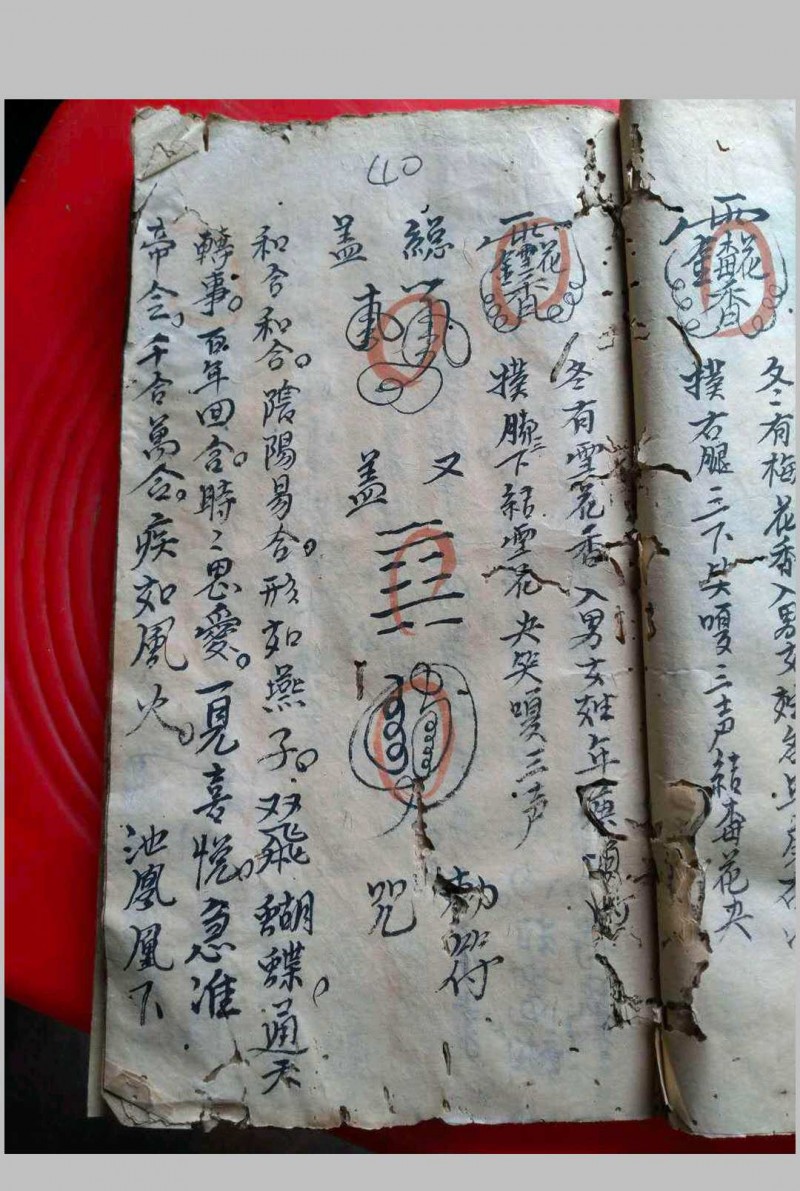 冬有梅花香入男女姓名
撲右腿三下笑嗄三声結梅花夬
40
冬有雪花香入男女姓年
撲脚三下結雪花夬笑嗄三声
總
盖
又
盖
勅符
咒
和合和合。陰陽易合。形如燕子。双飛蝴蝶。通天
轉事。百年回含。時〻思愛。一見喜悦。急准
帝令。千合萬合。疾如風火。 池凰凰下